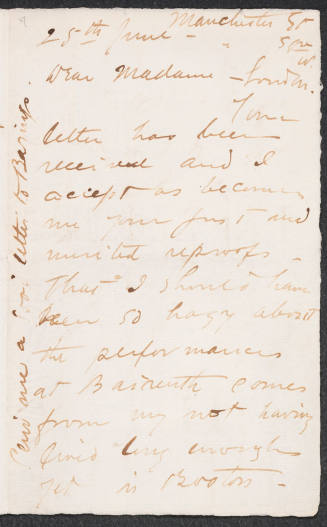 Manchester St
25th June - " Sqre
W.
Dear Madame - London.
Your
letter has been
received and I
accept as becomes
me your just and
merited reproofs -
That I should have
been so hazy about
the performances
at Baireuth comes
from my not having
lived long enough
yet in Boston -
Send me a letter to Barings.